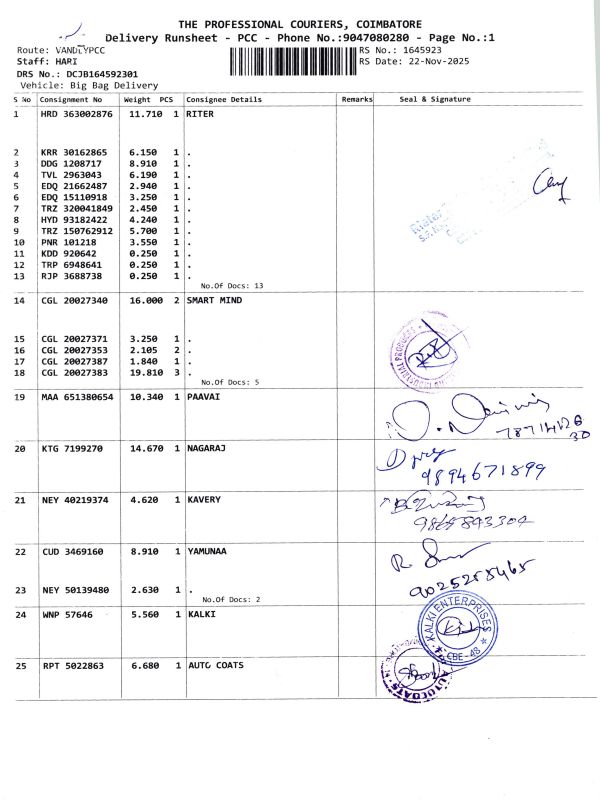 THE PROFESSIONAL COURIERS, COIMBATORE
Delivery Runsheet - PCC - Phone No.:9047080280 - Page No.:1
Route: VANDLYPCC
RS No.: 1645923
Staff: HARI
RS Date: 22-Nov-2025
DRS No.: DCJB164592301
Vehicle: Big Bag Delivery
S No Consignment No Weight PCS Consignee Details Remarks Seal & Signature
1 HRD 363002876 11.710 1 RITER
2 KRR 30162865 6.150 1 .
3 DDG 1208717 8.910 1 .
4 TVL 2963043 6.190 1 .
5 EDQ 21662487 2.940 1 .
6 EDQ 15110918 3.250 1 .
7 TRZ 320041849 2.450 1 .
8 HYD 93182422 4.240 1 .
9 TRZ 150762912 5.700 1 .
10 PNR 101218 3.550 1 .
11 KDD 920642 0.250 1 .
12 TRP 6948641 0.250 1 .
13 RJP 3688738 0.250 1 .
No.Of Docs: 13
14 CGL 20027340 16.000 2 SMART MIND
15 CGL 20027371 3.250 1 .
16 CGL 20027353 2.105 2 .
17 CGL 20027387 1.840 1 .
18 CGL 20027383 19.810 3 .
No.Of Docs: 5
19 MAA 651380654 10.340 1 PAAVAI
20 KTG 7199270 14.670 1 NAGARAJ
9894671899
21 NEY 40219374 4.620 1 KAVERY
22 CUD 3469160 8.910 1 YAMUNAA
23 NEY 50139480 2.630 1 .
No.Of Docs: 2
24 WNP 57646 5.560 1 KALKI
KALKI ENTERPRISES
CBE-48
25 RPT 5022863 6.680 1 AUTO COATS
AUTOCOATS